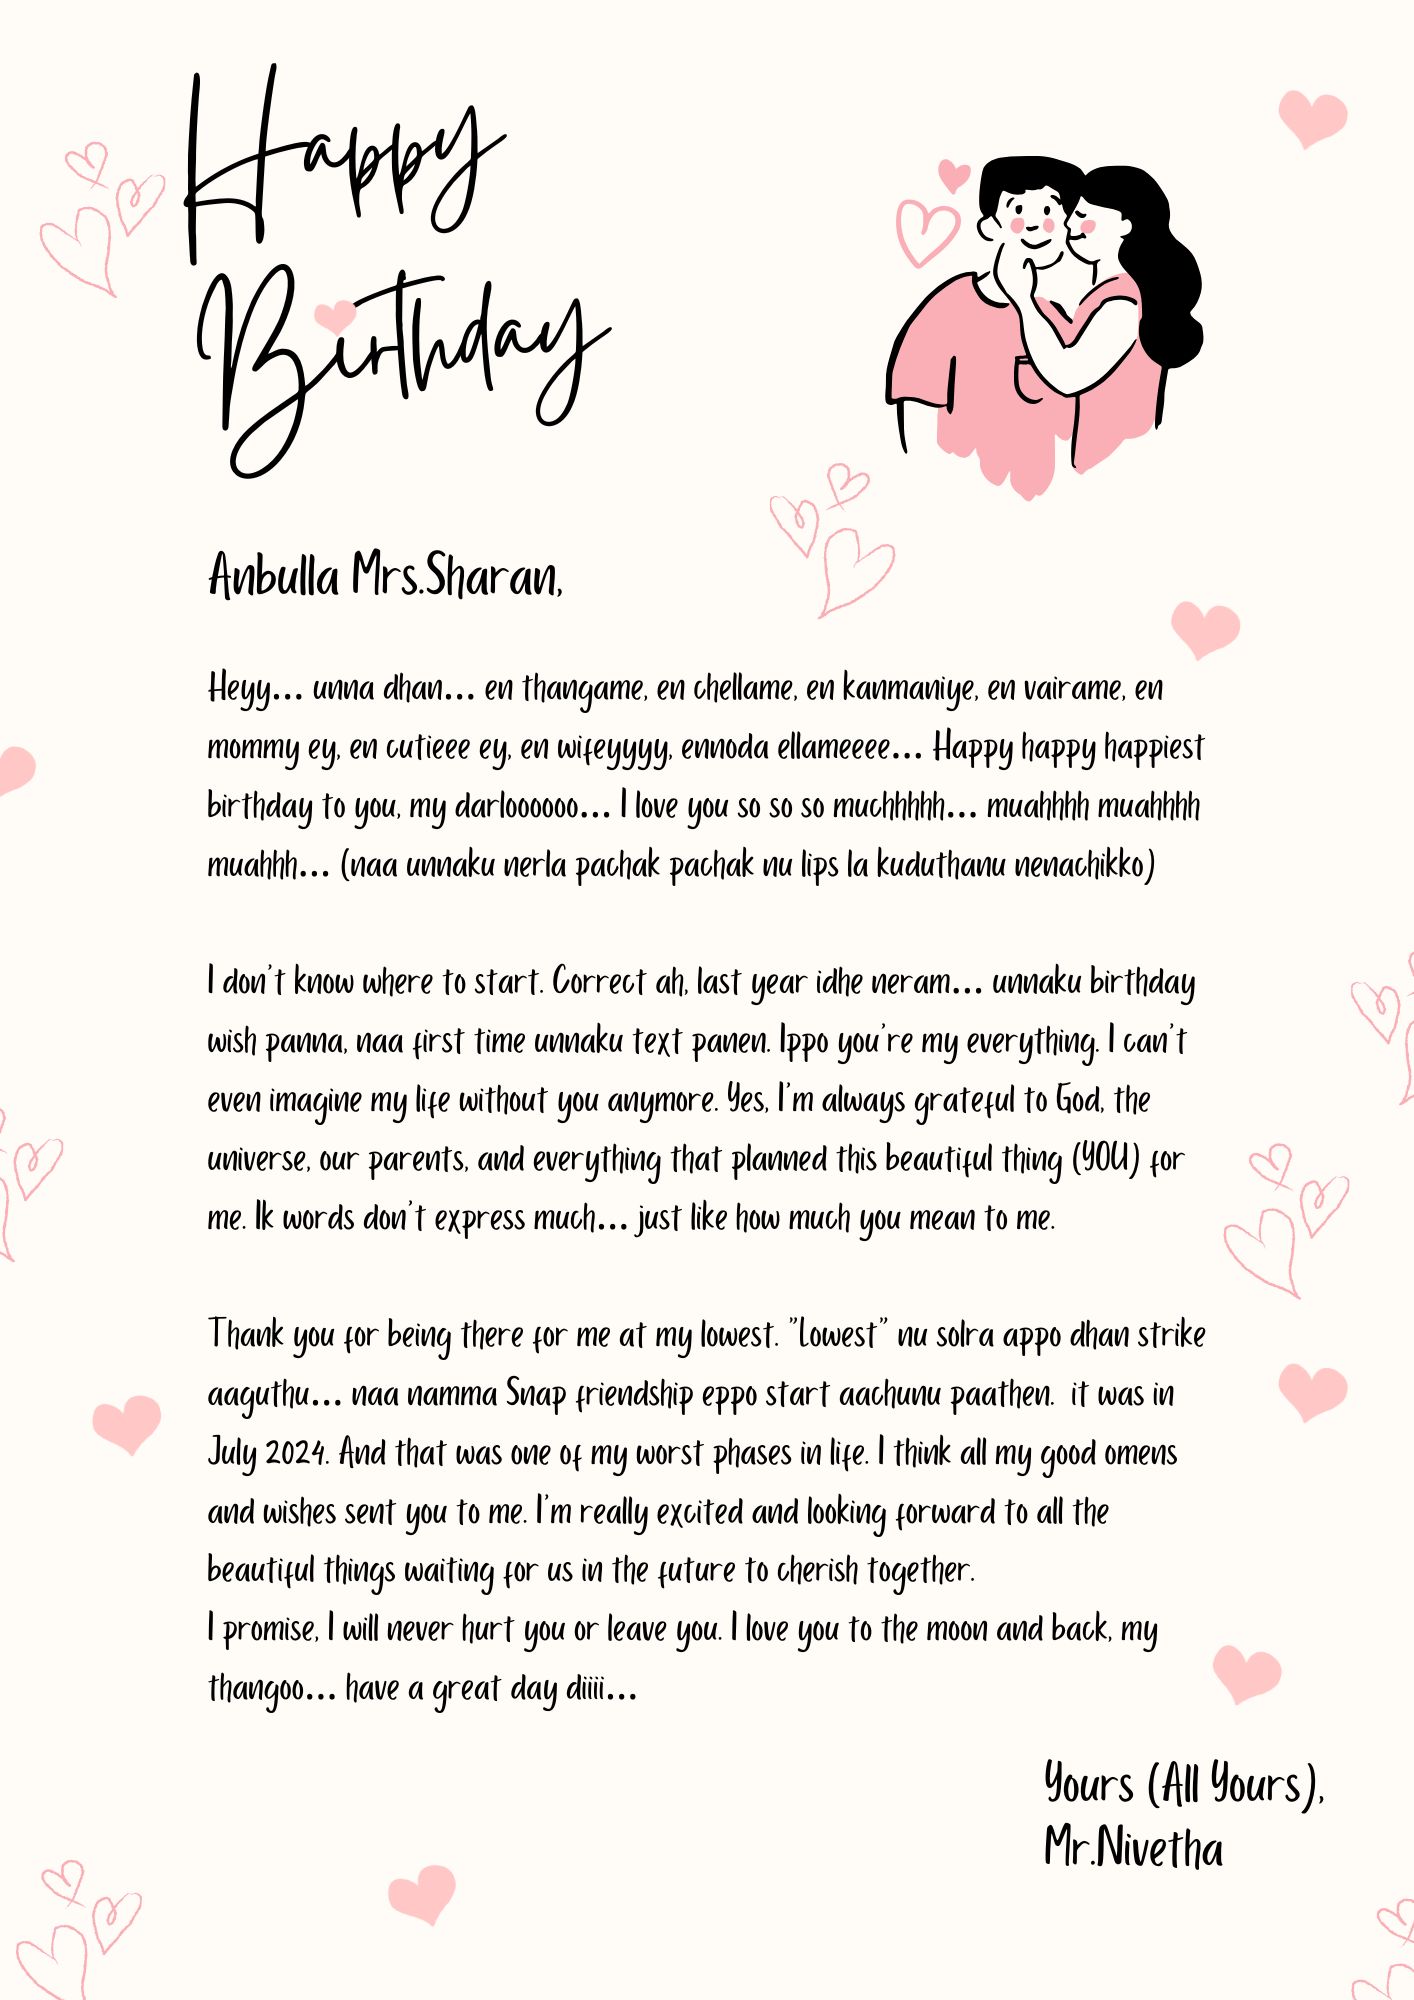 Happy
Birthday
Anbulla Mrs.Sharan,
Heyy... unna dhan... en thangame, en chellame, en kanmaniye, en vairame, en
mommy ey, en cutieee ey, en wifeyyyy, ennoda ellameeee... Happy happy happiest
birthday to you, my darloooooo... I love you so so so muchhhhh... muahhhh muahhhh
muahhh... (naa unnaku nerla pachak pachak nu lips la kuduthanu nenachikko)
I don't know where to start. Correct ah, last year idhe neram... unnaku birthday
wish panna, naa first time unnaku text panen. Ippo you're my everything. I can't
even imagine my life without you anymore. Yes, I'm always grateful to God, the
universe, our parents, and everything that planned this beautiful thing (YOU) for
me. Ik words don't express much... just like how much you mean to me.
Thank you for being there for me at my lowest. "Lowest" nu solra appo dhan strike
aaguthu... naa namma Snap friendship eppo start aachunu paathen.  it was in
July 2024. And that was one of my worst phases in life. I think all my good omens
and wishes sent you to me. I'm really excited and looking forward to all the
beautiful things waiting for us in the future to cherish together.
I promise, I will never hurt you or leave you. I love you to the moon and back, my
thangoo... have a great day diiii...
Yours (All Yours),
Mr.Nivetha